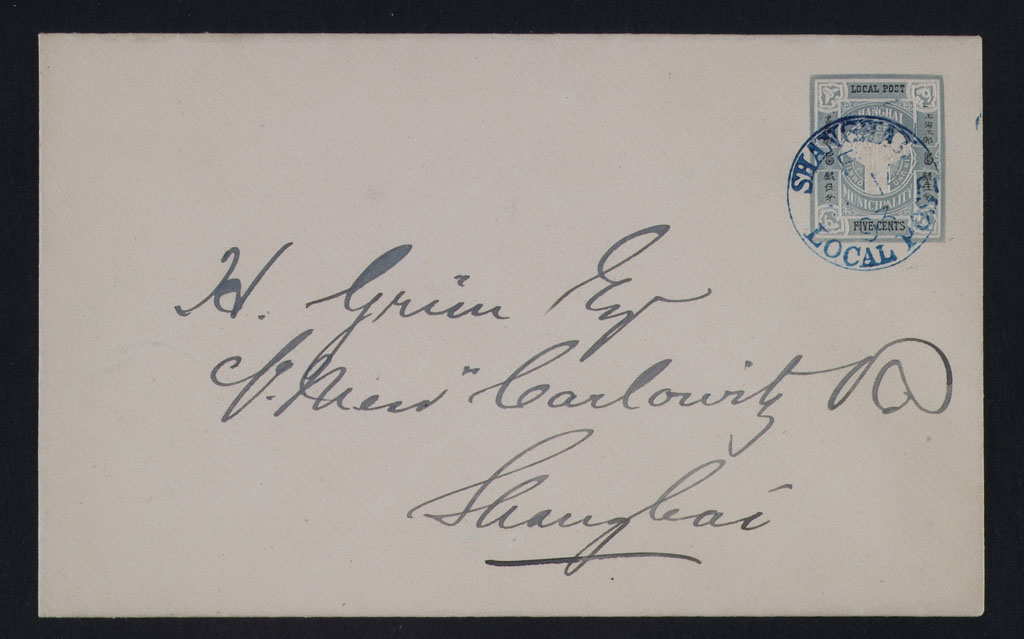 LOCAL POST
SHANGHAI
MUNICIPALITY
FIVE CENTS
SHANGHAI
LOCAL POST
H. Grün Esq
c/o. Mess" Carlowitz & Co
Shanghai